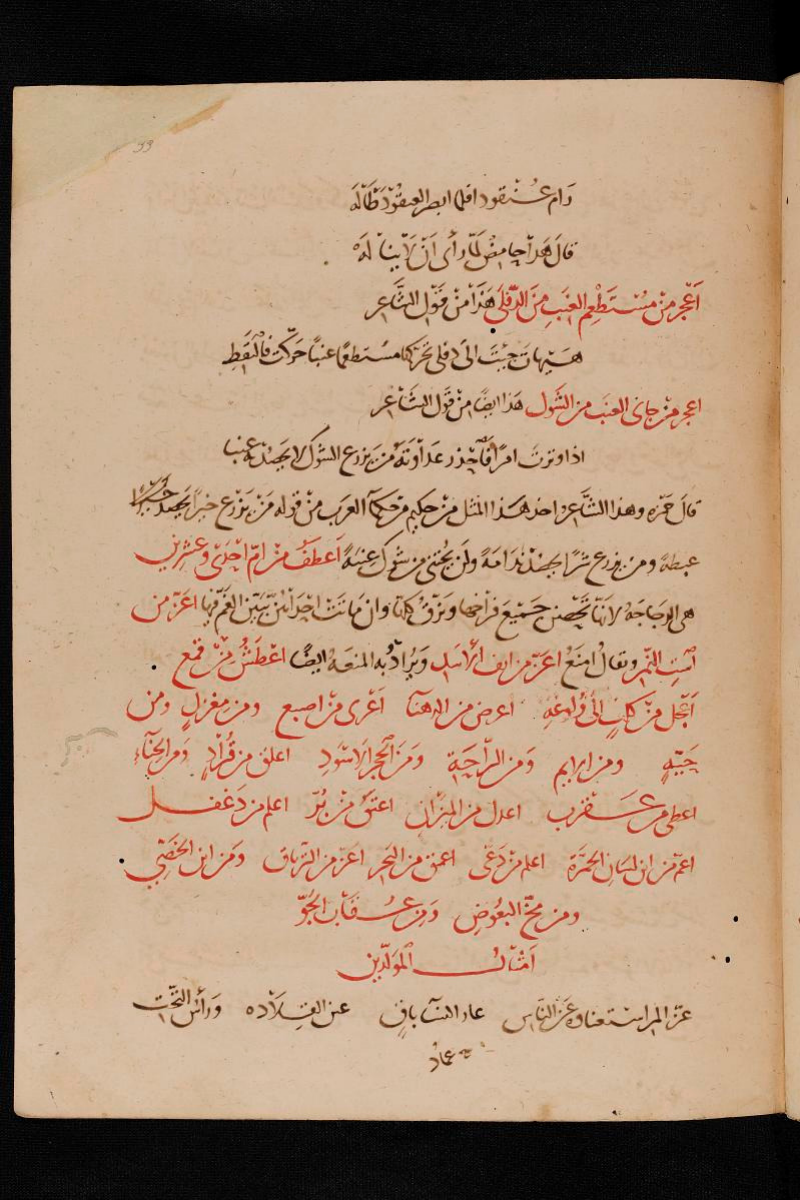 رَام عُنْقودا فلما ابصر العنقُوْدَ طَالَهُ
قالَ هَذا حَامِضٌ لمَّا رَأى اَنْ لَا يَنَالَهُ
اَعْجَز منْ مُسْتَطْعِم العِنَبِ مِنَ الدِّفْلَى هَذَا مِنْ قَوْلِ الشَّاعِر
هَيْهَات جِئْتَ الَى دفلى تحَركهَا مستطعمًا عنبًا حَركْت فَالْتَقِطِ
اعجز منْ جانى العنَب منَ الشَّوْك هَذَا ايضًا منْ قَوْل الشَّاعِر
اذا وترتَ امرًا فَاحْذر عَدَاوَتَهُ مَنْ يَزرَع الشوْك لا يَحصِدْ به عِنَبا
قالَ حَمزه وهذا الشَّاعر اخذ هَذا المثل منْ حكيم من حكمآ العرَب منْ قوله مَنْ يَزْرَع خيرًا يَحصد
غبطةً ومن يزرع شرًا يحصدْ نَدَامَةً ولَن يَجْتنى من شوك عِنبَةً اَعْطَفُ مِنْ امّ اِحْدَى وعِشْرِين
هى الدجَاجَهُ لانهَا تحْضن جَمِيْعَ فرَاخها وتزقّ كلهَا وان مَاتَتْ اِحْدَاهُنّ تبَيّن الغَمّ فيهَا اعَزّ مِن
اسْتِ النَّمِر ويقالُ امنَعْ اعَزّ من انف الاَسَدِ ويُرَادُ به المنعَة ايضًا اعْطَشُ مِنْ قمع
اَعْجَل مِنْ كَلبٍ الَى وُلُوغِهِ اعرض من الدهنَا اَعْرى منْ اصبع ومن مغزلٍ ومن
حَيّةٍ ومن الايم ومنَ الرّاحَةِ ومَنَ الحجر الاَسْودِ اعلق من قُرَادٍ ومَن الحِنّاءِ
اعطى من عَقْرَب اعدل من الميزَان اعتَق مِنْ بُرّ اعلم من دَغْفَل
اعمّ من ابن لسَانِ الحُمَّرَة اعلم من دَغَى اعمق من البَحر اعَزّ من الترياق ومن ابن الخَصِيّ
ومن مُخّ البعُوضِ ومن عُقَاب الجَوّ
اَمْثَالُ المُوَلّدِين
عِزّ المرء استغناؤه عَن النَّاس عار النسَآ باقٍ عين القلَادَه ورَأس التَّخت
عماد